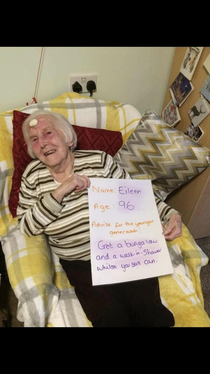 Name: Eileen
Age: 96
Advise for the younger
generation:
Get a bungalow
and a walk in shower
whilst you still can.